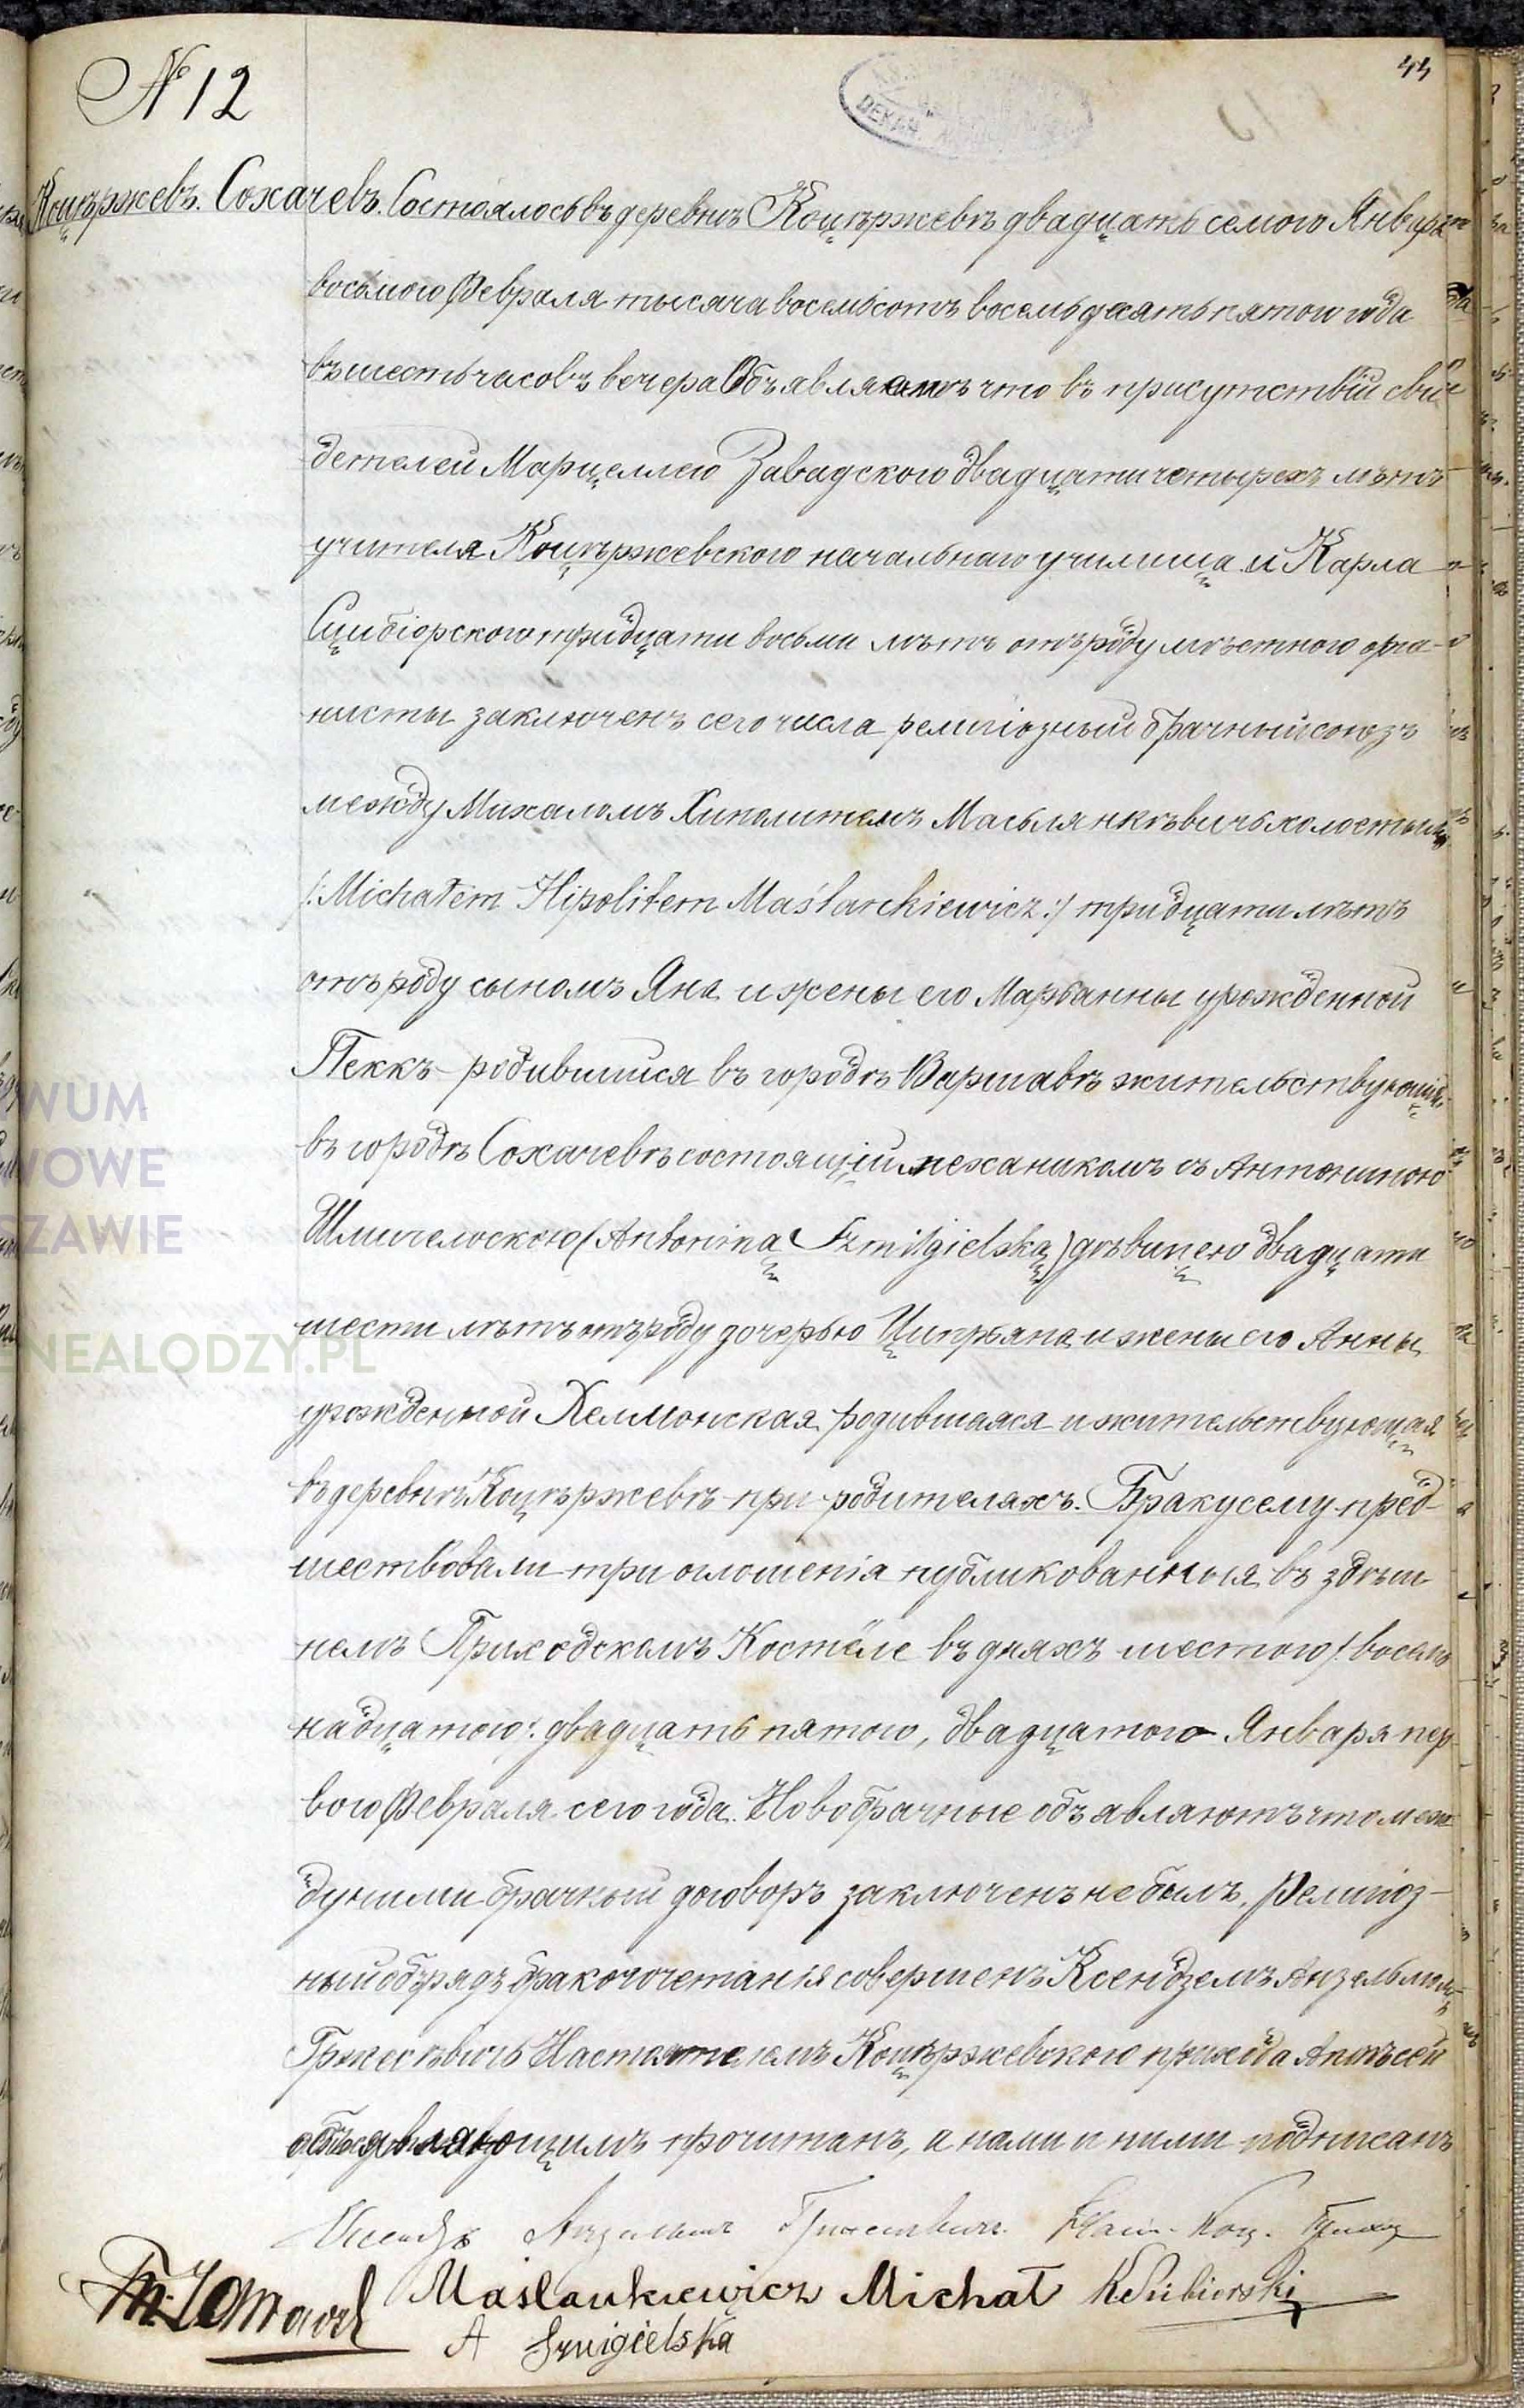 44
№ 12
Коцѣржевъ. Сохачевъ. Состоялось въ деревнѣ Коцѣржевѣ двадцать семого Января
восьмого Февраля тысяча восемьсотъ восемьдесятъ пятого года
въ шесть часовъ вечера Объявляемъ что въ присутствіи сви
детелей Марцеллего Завадского двадцати четырехъ лѣтъ
учителя Коцѣржевского начальнаго училища и Карла
Сцибіорского тридцати восьми лѣтъ отъ роду мѣстного орга-
нисты заключенъ сего числа религіозный брачный союзъ
между Михаломъ Хиполитемъ Масьлянкѣвичь холостымъ
/: Michałem Hipolitem Maślankiewicz :/ тридцати лѣтъ
отъ роду сыномъ Яна и жены его Марьанны урожденной
Пеккъ родившийся въ городѣ Варшавѣ жительствующій
въ городѣ Сохачевѣ состоящій механикомъ съ Антониною
Шмигельскою (Antoniną Szmigielską) дѣвицею двадцати
шести лѣтъ отъ роду дочерью Ципрьяна и жены его Анны
урожденной Хелмонская родившаяся и жительствующая
въ деревнѣ Коцѣржевѣ при родителяхъ. Браку сему пред-
шествовали три оглошенія публикованныя въ здѣш
немъ Приходскомъ Костёле въ дняхъ шестого /: восем
надцатого :/ двадцать пятого, двадцатого Января пер
вого Февраля сего года. Новобрачные объявляютъ что меж
ду ними брачный договоръ заключенъ не былъ. Религіоз-
ный обрядъ бракочочетанія совершенъ Ксендземъ Анзельмомъ
Гржескѣвичь Настоятелемъ Коцѣржевского прихода Актъ сей
объявляющимъ прочитанъ, а нами и ними подписанъ
Ксендзъ Анзельмъ Наст. Коц. Прихода
Maślankiewicz Michał K Scibiorski
A Szmigielska
ARCHIWUM
PAŃSTWOWE
W WARSZAWIE
GENEALODZY.PL